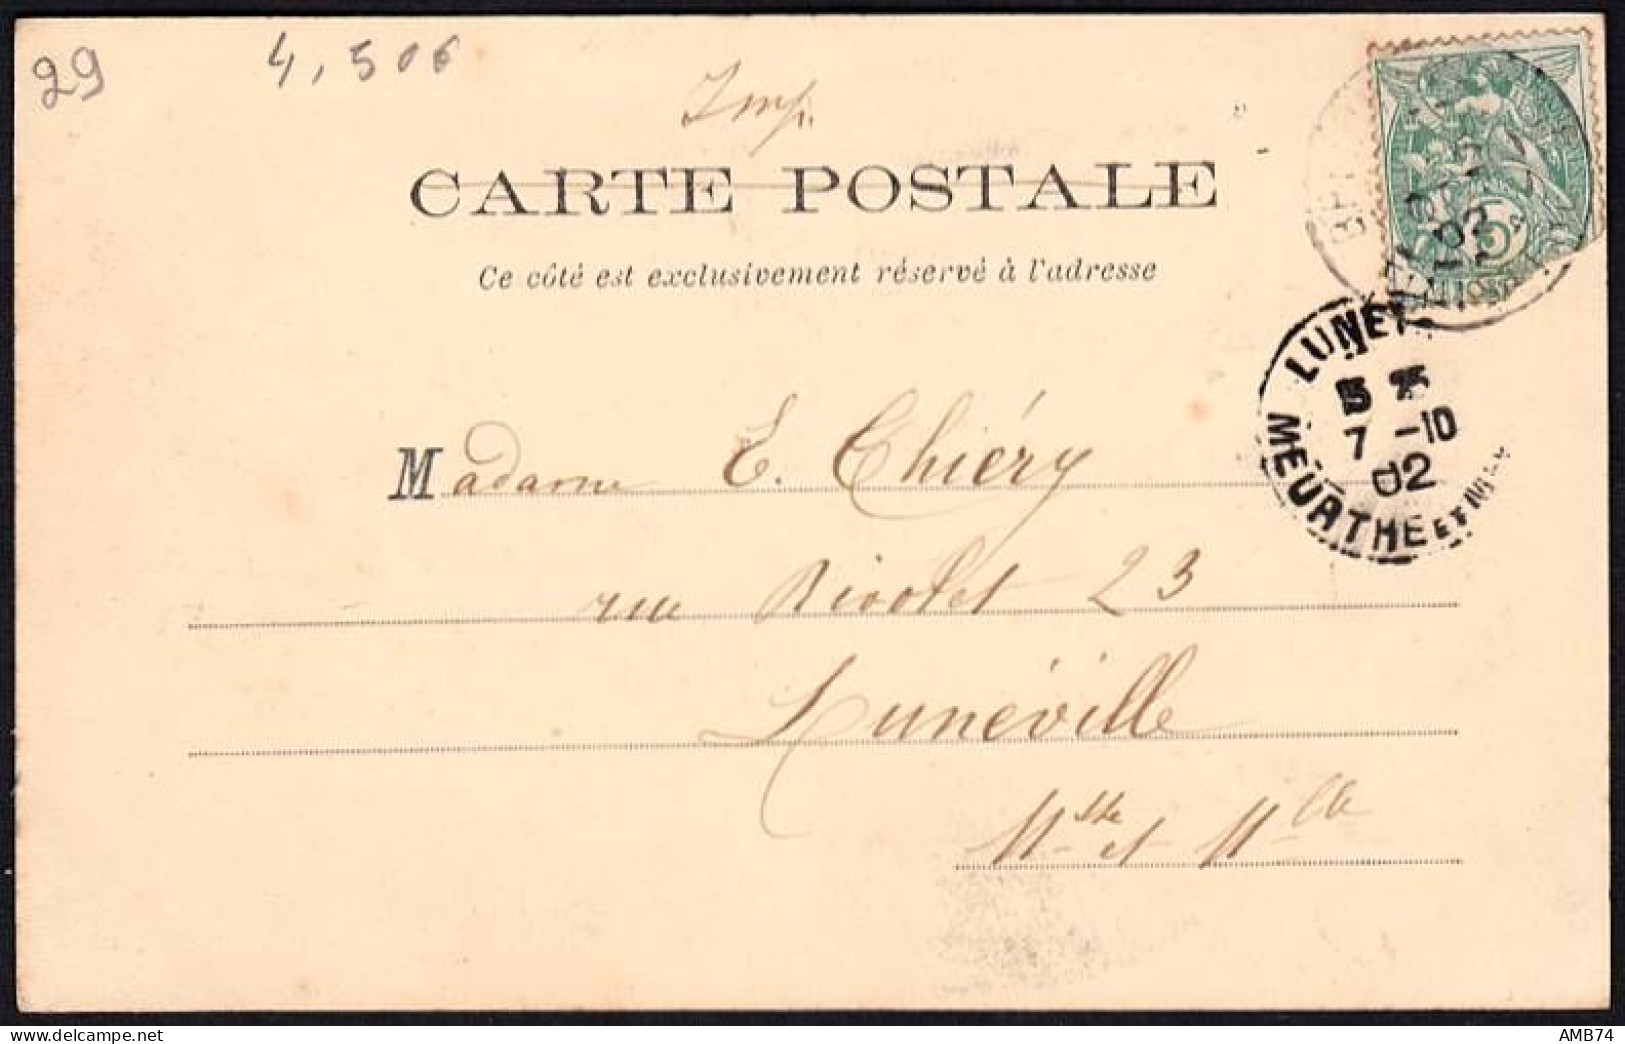 29
4,50 6
Imp.
CARTE POSTALE
Ce côté est exclusivement réservé à l'adresse
5
02
LUNÉV
7 -10
02
MEURTHE ET M
Madame E. Thiéry
rue Rivolet 23
Lunéville
Mthe et Mlle
AMB74